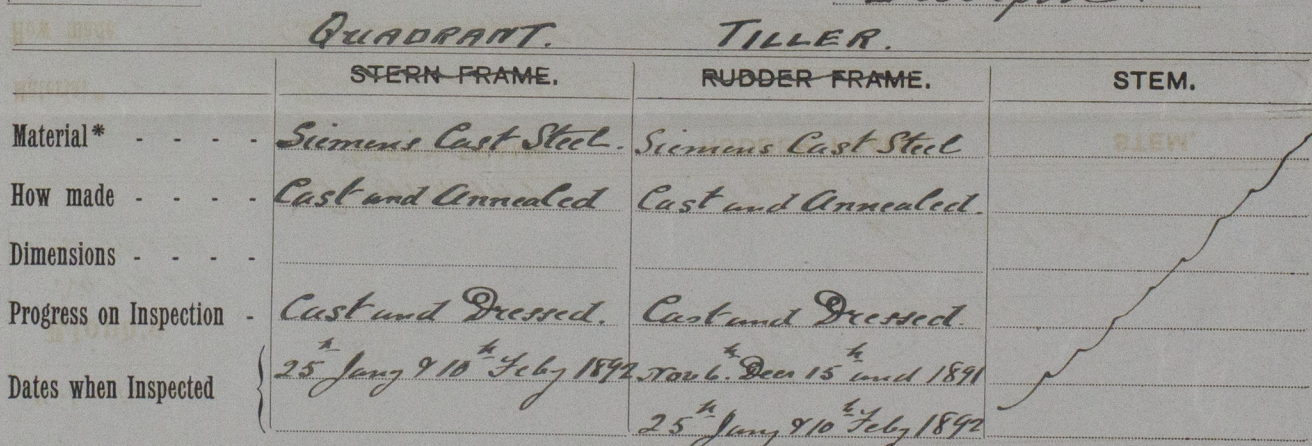 QUADRANT. TILLER.
STERN FRAME. RUDDER FRAME. STEM.
Material* - - - - Siemens Cast Steel. Siemens Cast Steel
How made - - - - Cast and Annealed Cast and Annealed.
Dimensions - - - -
Progress on Inspection - Cast and Dressed. Cast and Dressed.
Dates when Inspected 25th Jany & 10th Feby 1892 Nov 6th Decr 15th and 1891
25th Jany & 10th Feby 1892